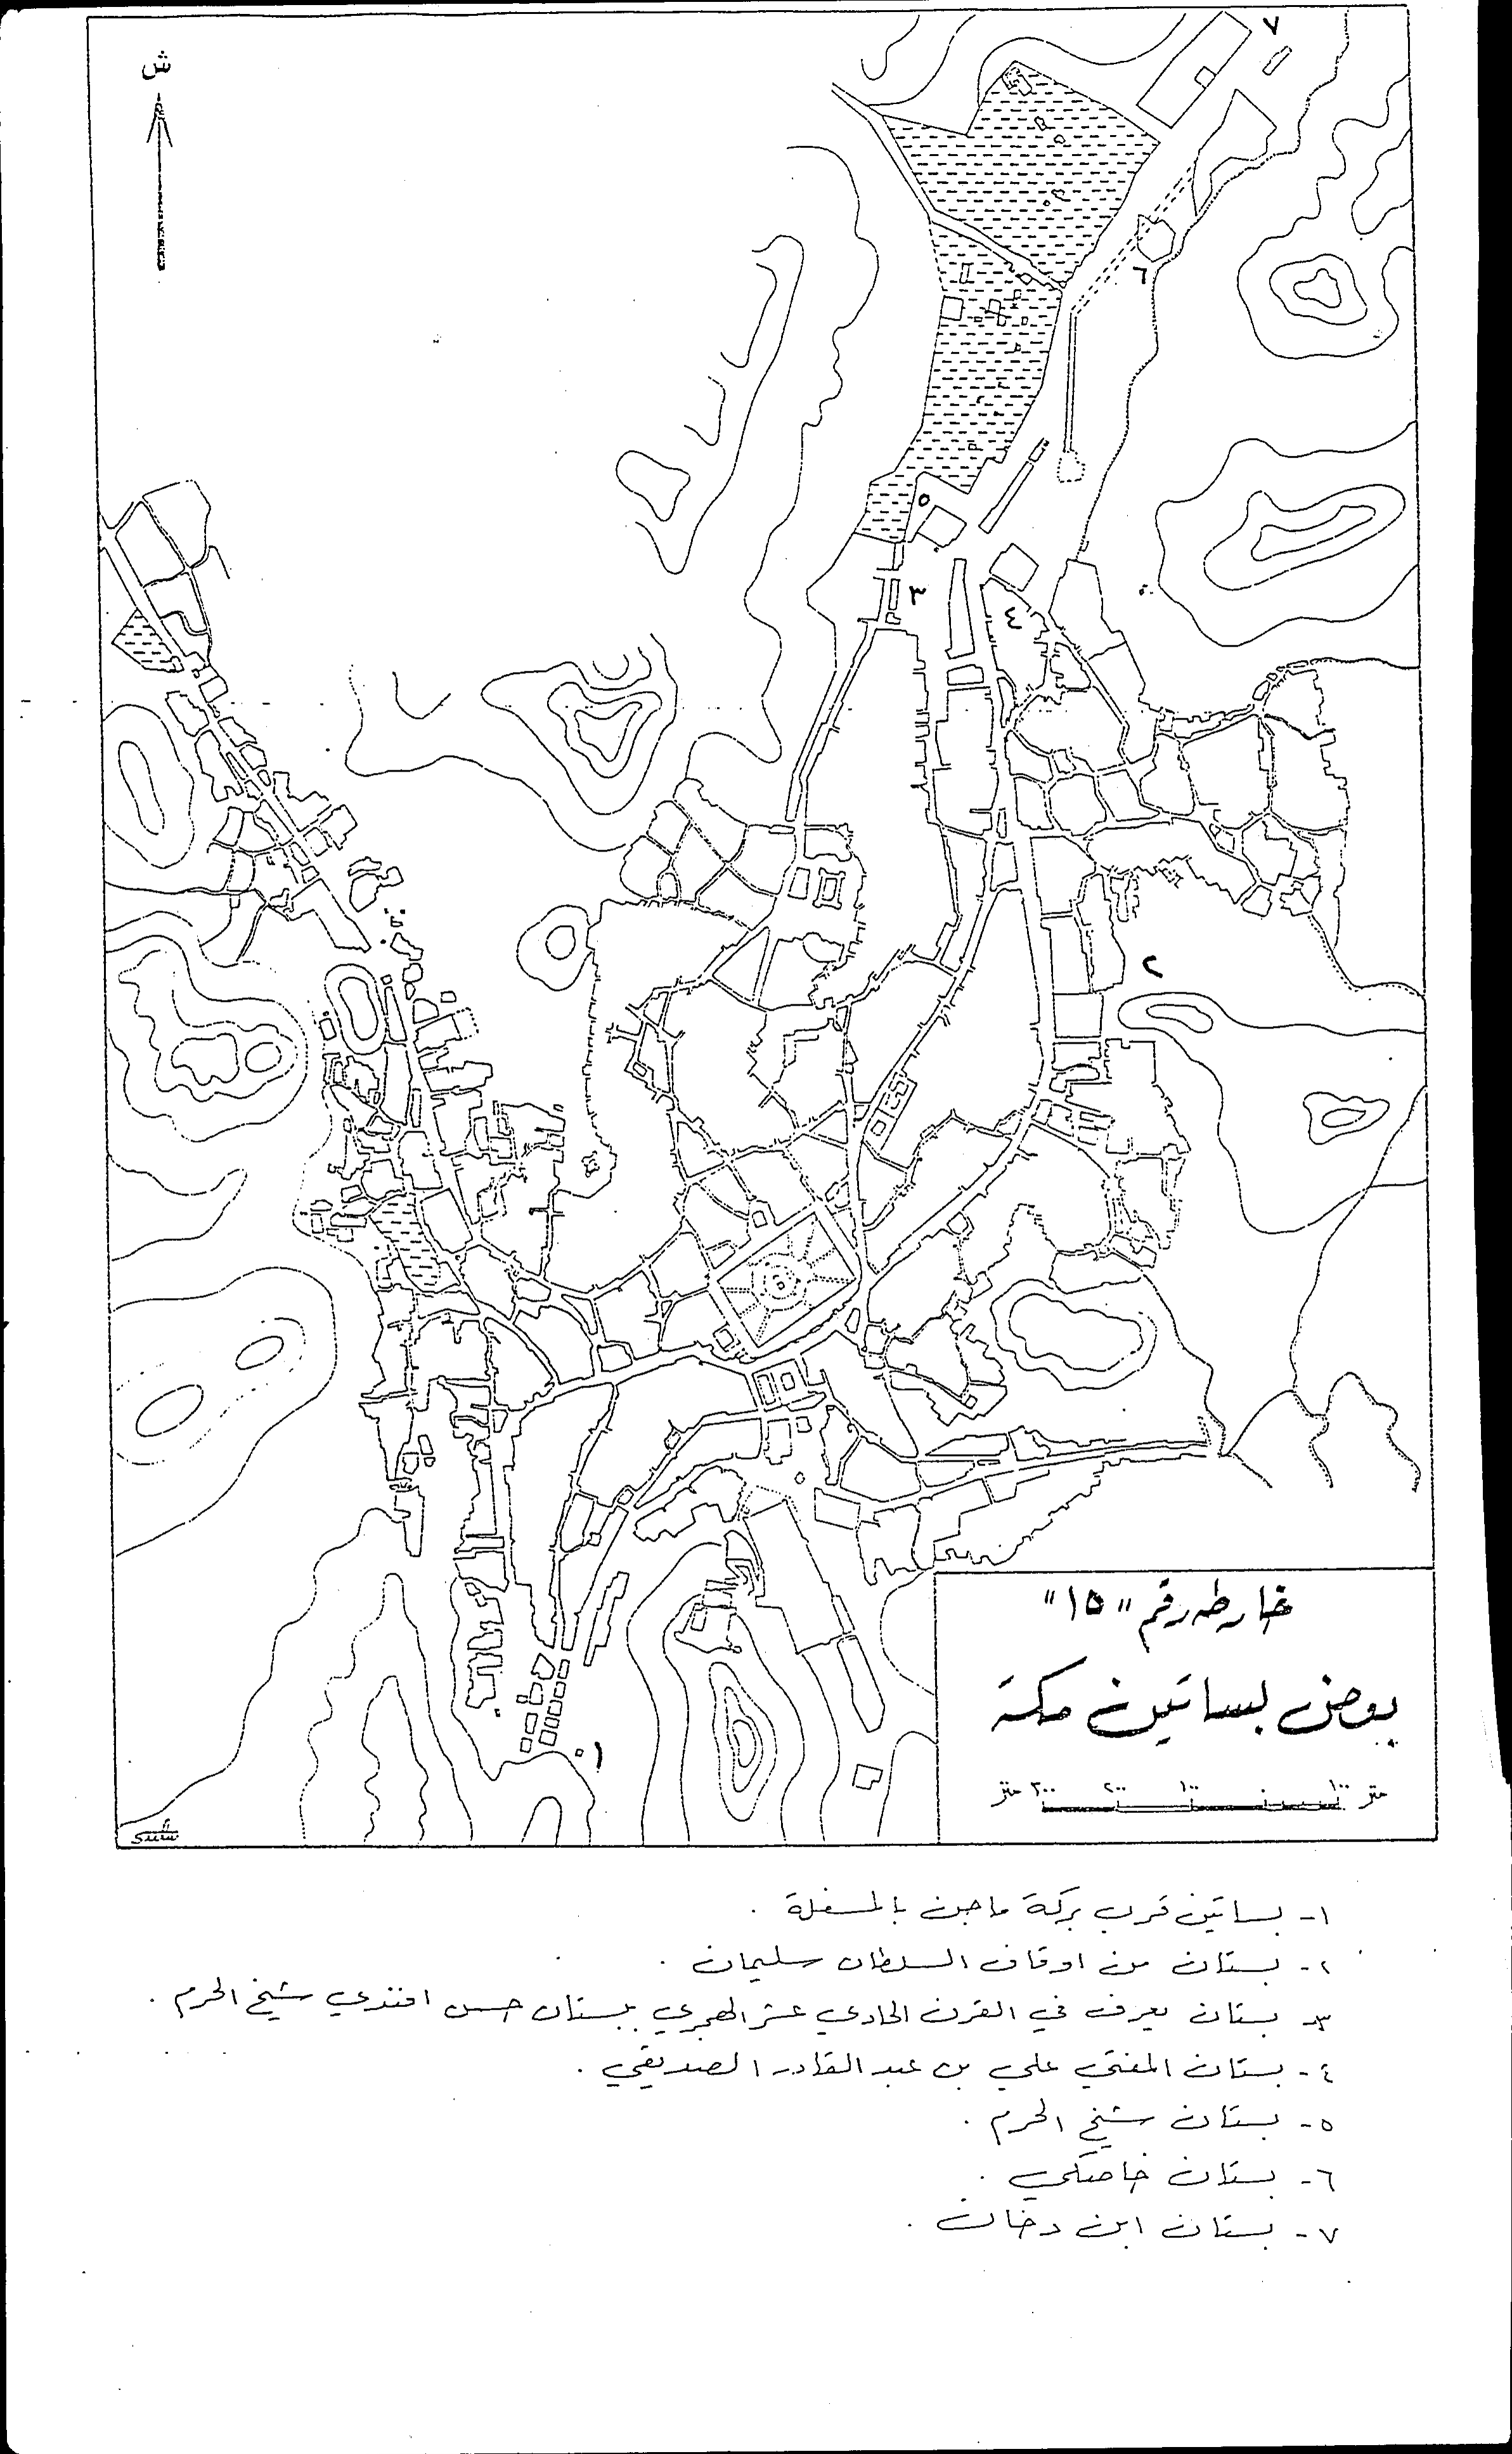 ش
٧
٦
٥
٣
٤
٢
١
خارطه رقم "١٥"
بعض بساتين مكة
متر ١٠٠ ٠ ١٠٠ ٢٠٠ ٣٠٠ متر
١- بساتين قرب بركة ماجن بالمسفلة .
٢- بستان من اوقاف السلطان سليمان .
٣- بستان يعرف في القرن الحادي عشر الهجري ببستان حسن افندي شيخ الحرم .
٤- بستان المفتي علي بن عبد القادر الصديقي .
٥- بستان شيخ الحرم .
٦- بستان خاصكي .
٧- بستان ابن دخان .